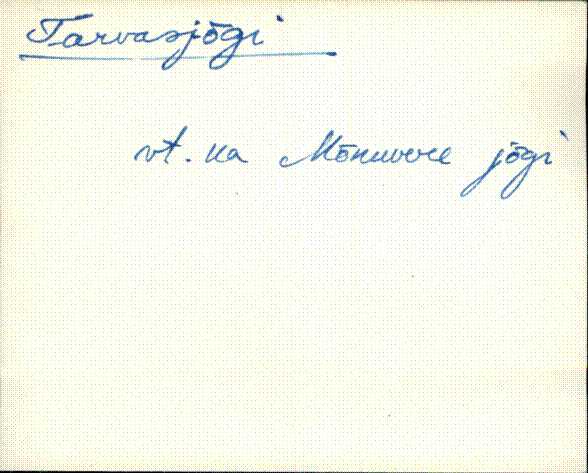 Tarvasjõgi
vt. ka Mõnuvere jõgi